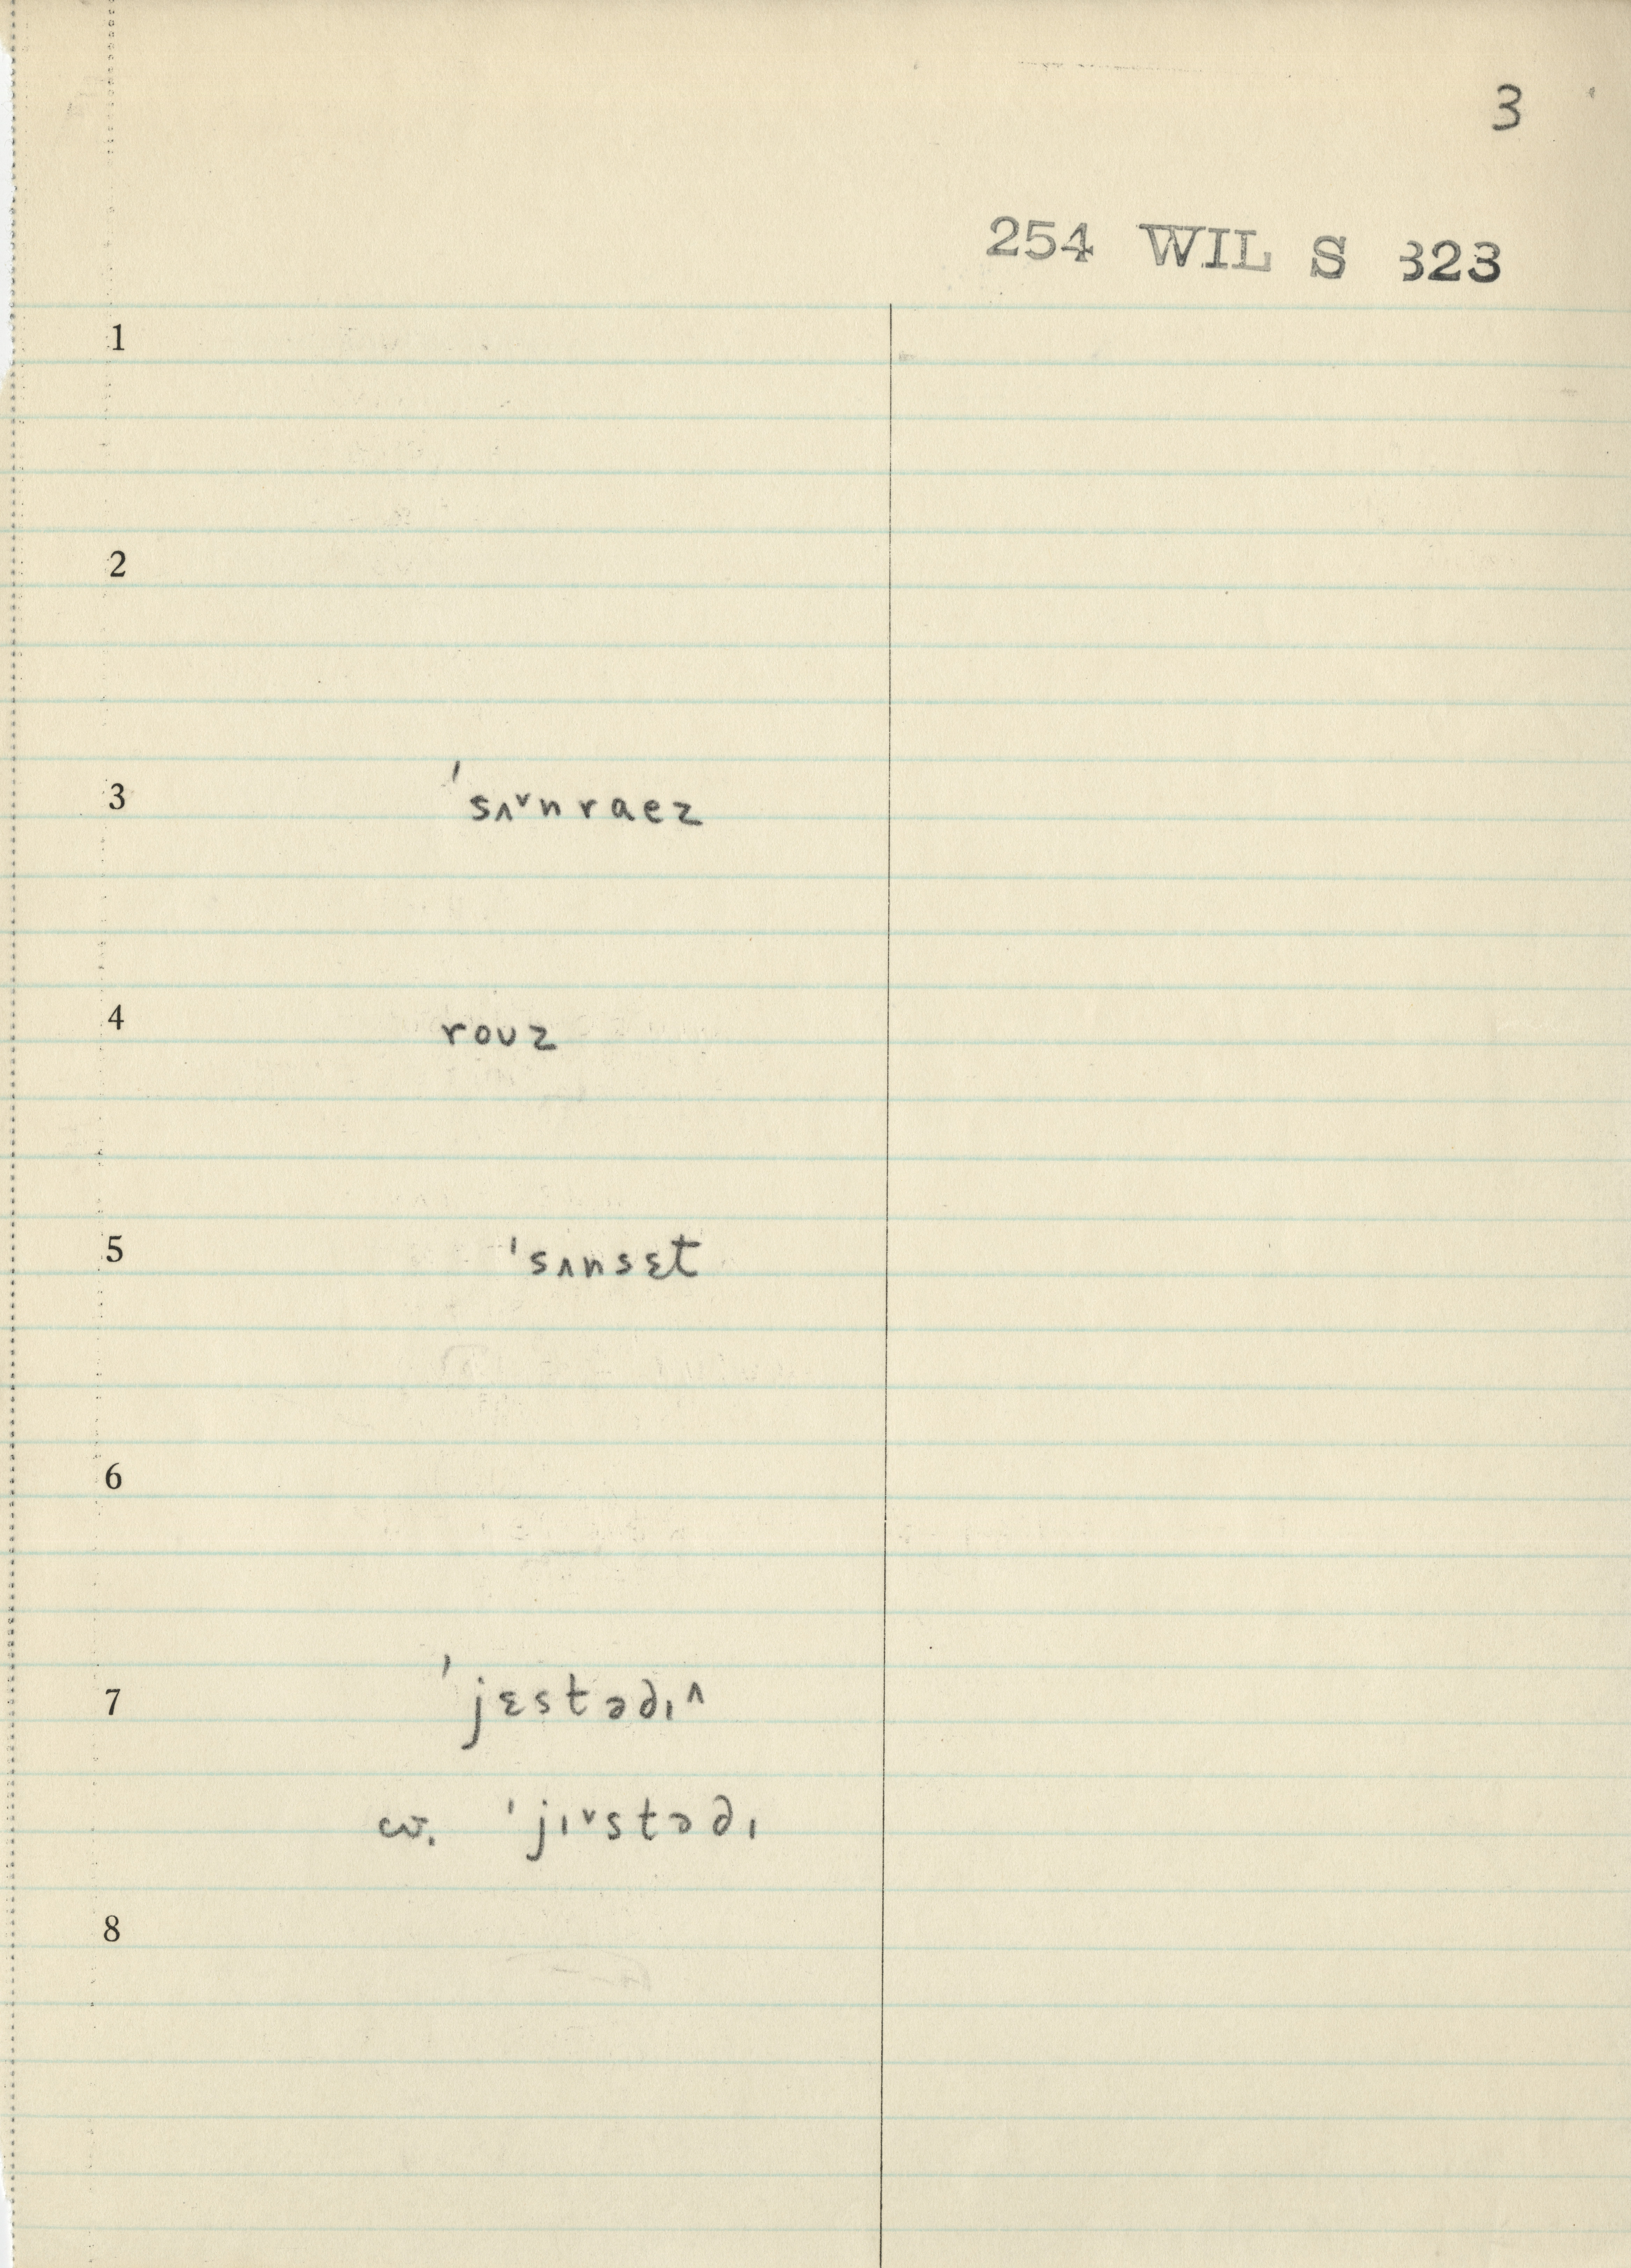 3
254 WIL S 323
1
2
3 ˈsʌ˅nraez
4 roʊz
5 ˈsʌnsɛt
6
7 ˈjɛstə∂ɪ˄
cv. ˈjɪ˅stə∂ɪ
8